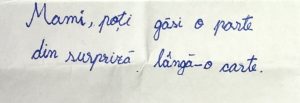 Mami, poți găsi o parte
din surpriză lângă-o carte.